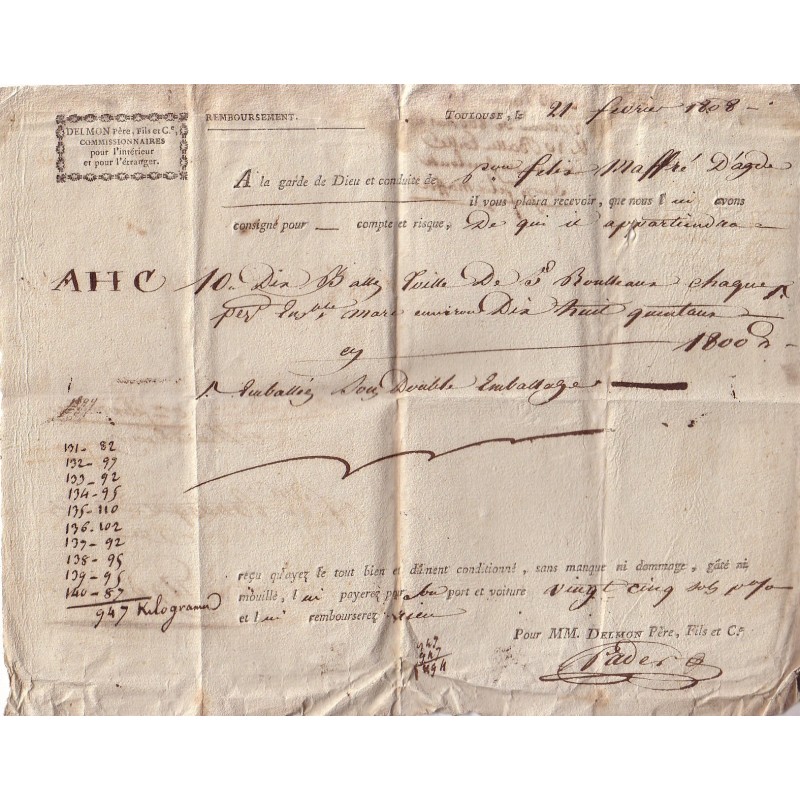 DELMON Père, Fils et C.e,
COMMISSIONNAIRES
pour l'intérieur
et pour l'étranger.
REMBOURSEMENT.
TOULOUSE, le 21 fevrier 1808
A la garde de Dieu et conduite de felix Maffré D'agde
il vous plaira recevoir, que nous lui avons
consigné pour compte et risque, De qui il appartiendra
AHC 10 Dix Balles toille De Roulleaux chaque
marc environ Dix huit quintaux
1800
Emballés Sous Double Emballage
131 - 82
132 - 99
133 - 92
134 - 95
135 - 110
136 - 102
137 - 92
138 - 95
139 - 95
140 - 87
947 Kilogrames
reçu qu'ayez le tout bien et dûment conditionné, sans manque ni dommage, gâté ni
mouillé, lui payerez par port et voiture vingt cinq sols
et lui rembourserez rien
947
947
1894
Pour MM. DELMON Père, Fils et C.e
Pader